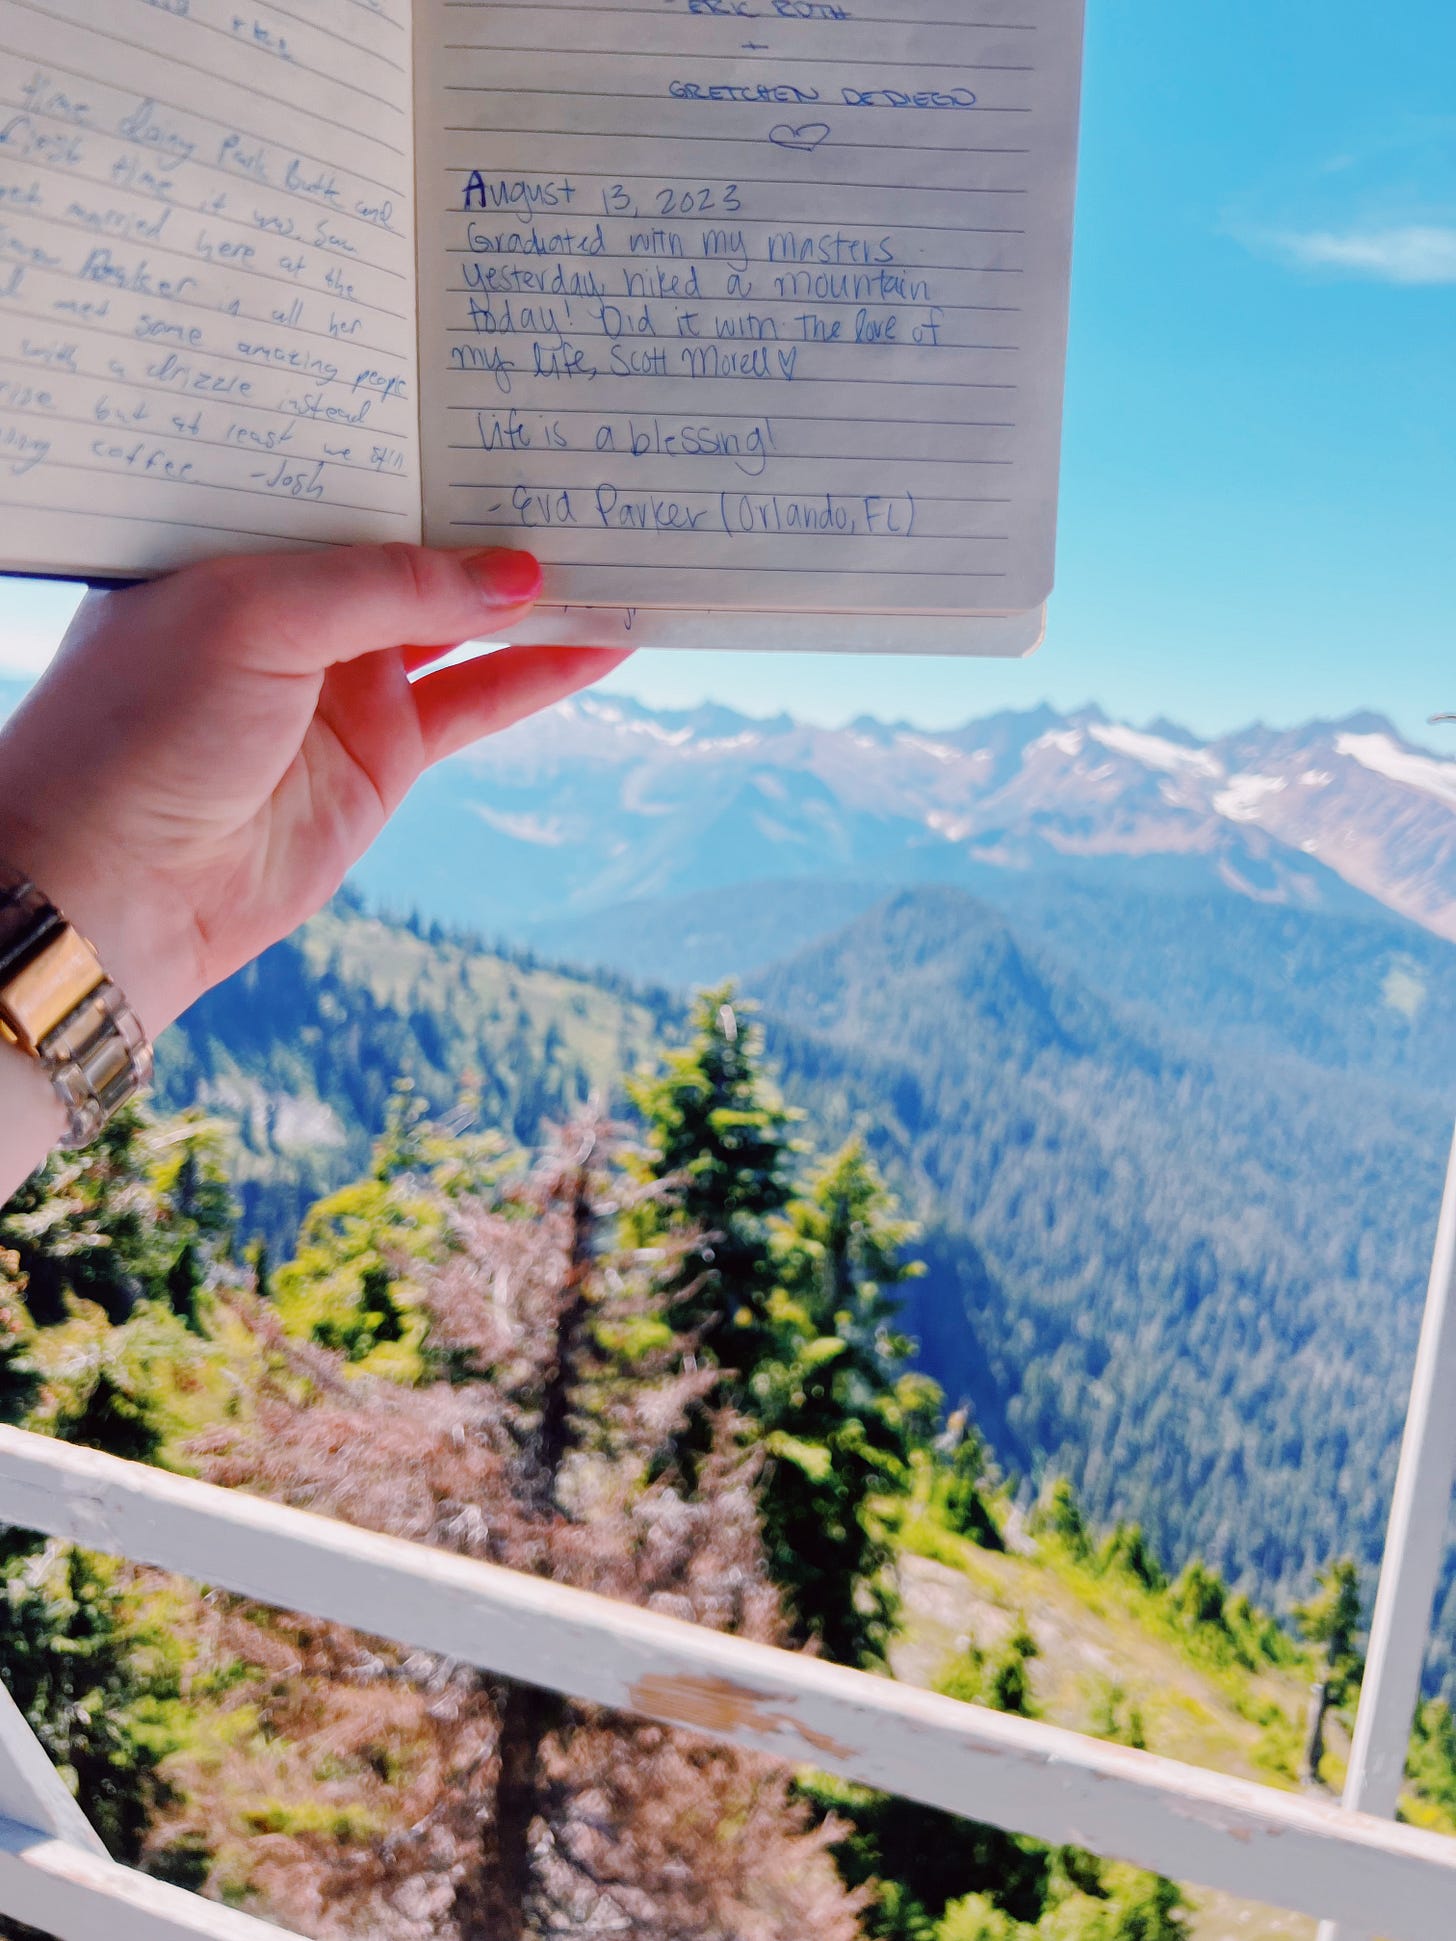 rtez
time doing Park Butt and
first time it was. Saw
get married here at the
Baker in all her
met some amazing people
with a drizzle instead
rise but at least we
coffee. -Josh
ERIC ROTH
+
GRETCHEN DEDIEGO
August 13, 2023
Graduated with my masters
yesterday, hiked a mountain
today! Did it with the love of
my life, Scott Morell♡
Life is a blessing!
- Eva Parker (Orlando, FL)